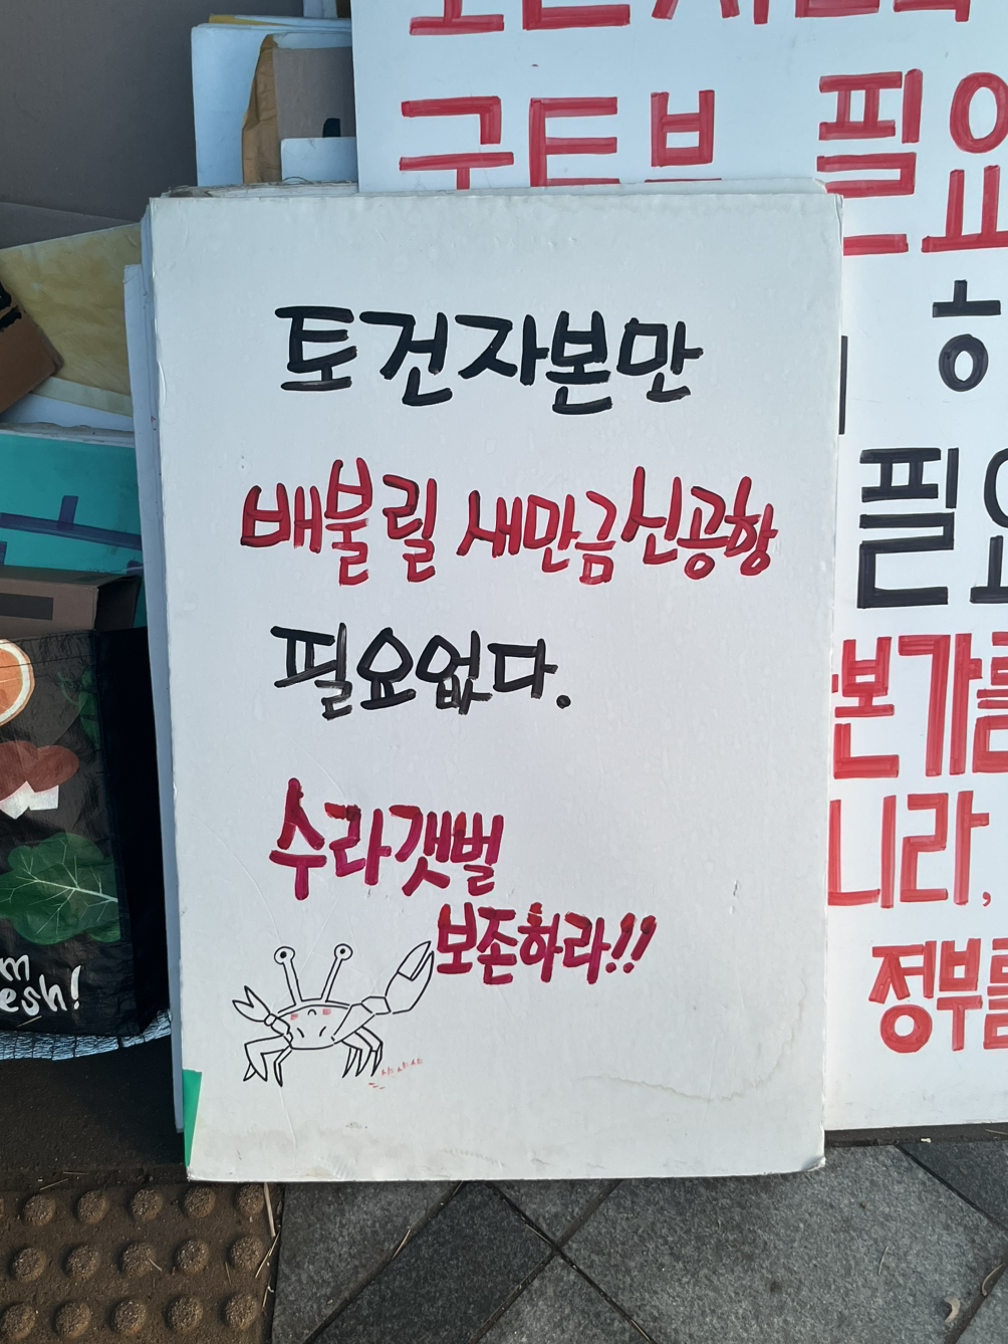 토건자본만
배불릴 새만금신공항
필요없다.
수라갯벌
보존하라!!
필요
필요
본가를
니라,
정부를
esh!